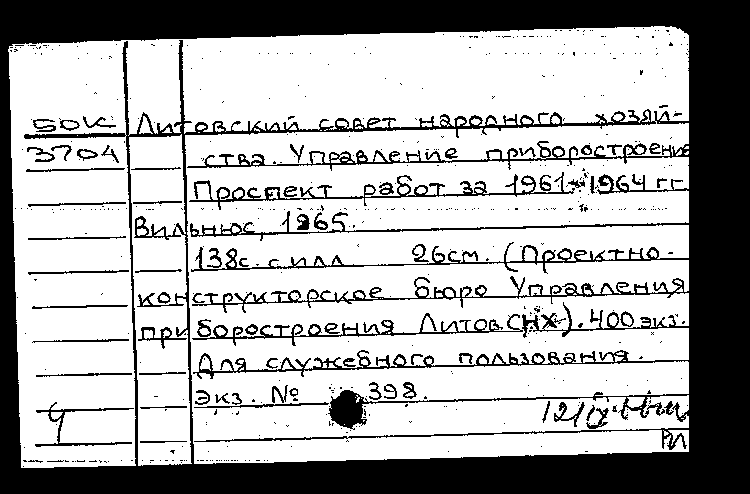 БОК Литовский совет народного хозяй-
3704 ства. Управление приборостроения
Проспект работ за 1961-1964 гг.
Вильнюс, 1965.
138с. с илл 26см. (Проектно-
конструкторское бюро Управления
приборостроения Литов.СНХ). 400 экз.
Для служебного пользования.
Экз. № 398.
Ч